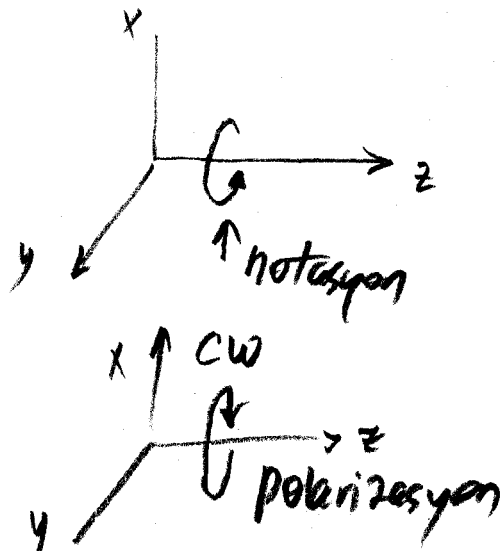 x
z
y
notasyon
x CW
z
polarizasyon
y